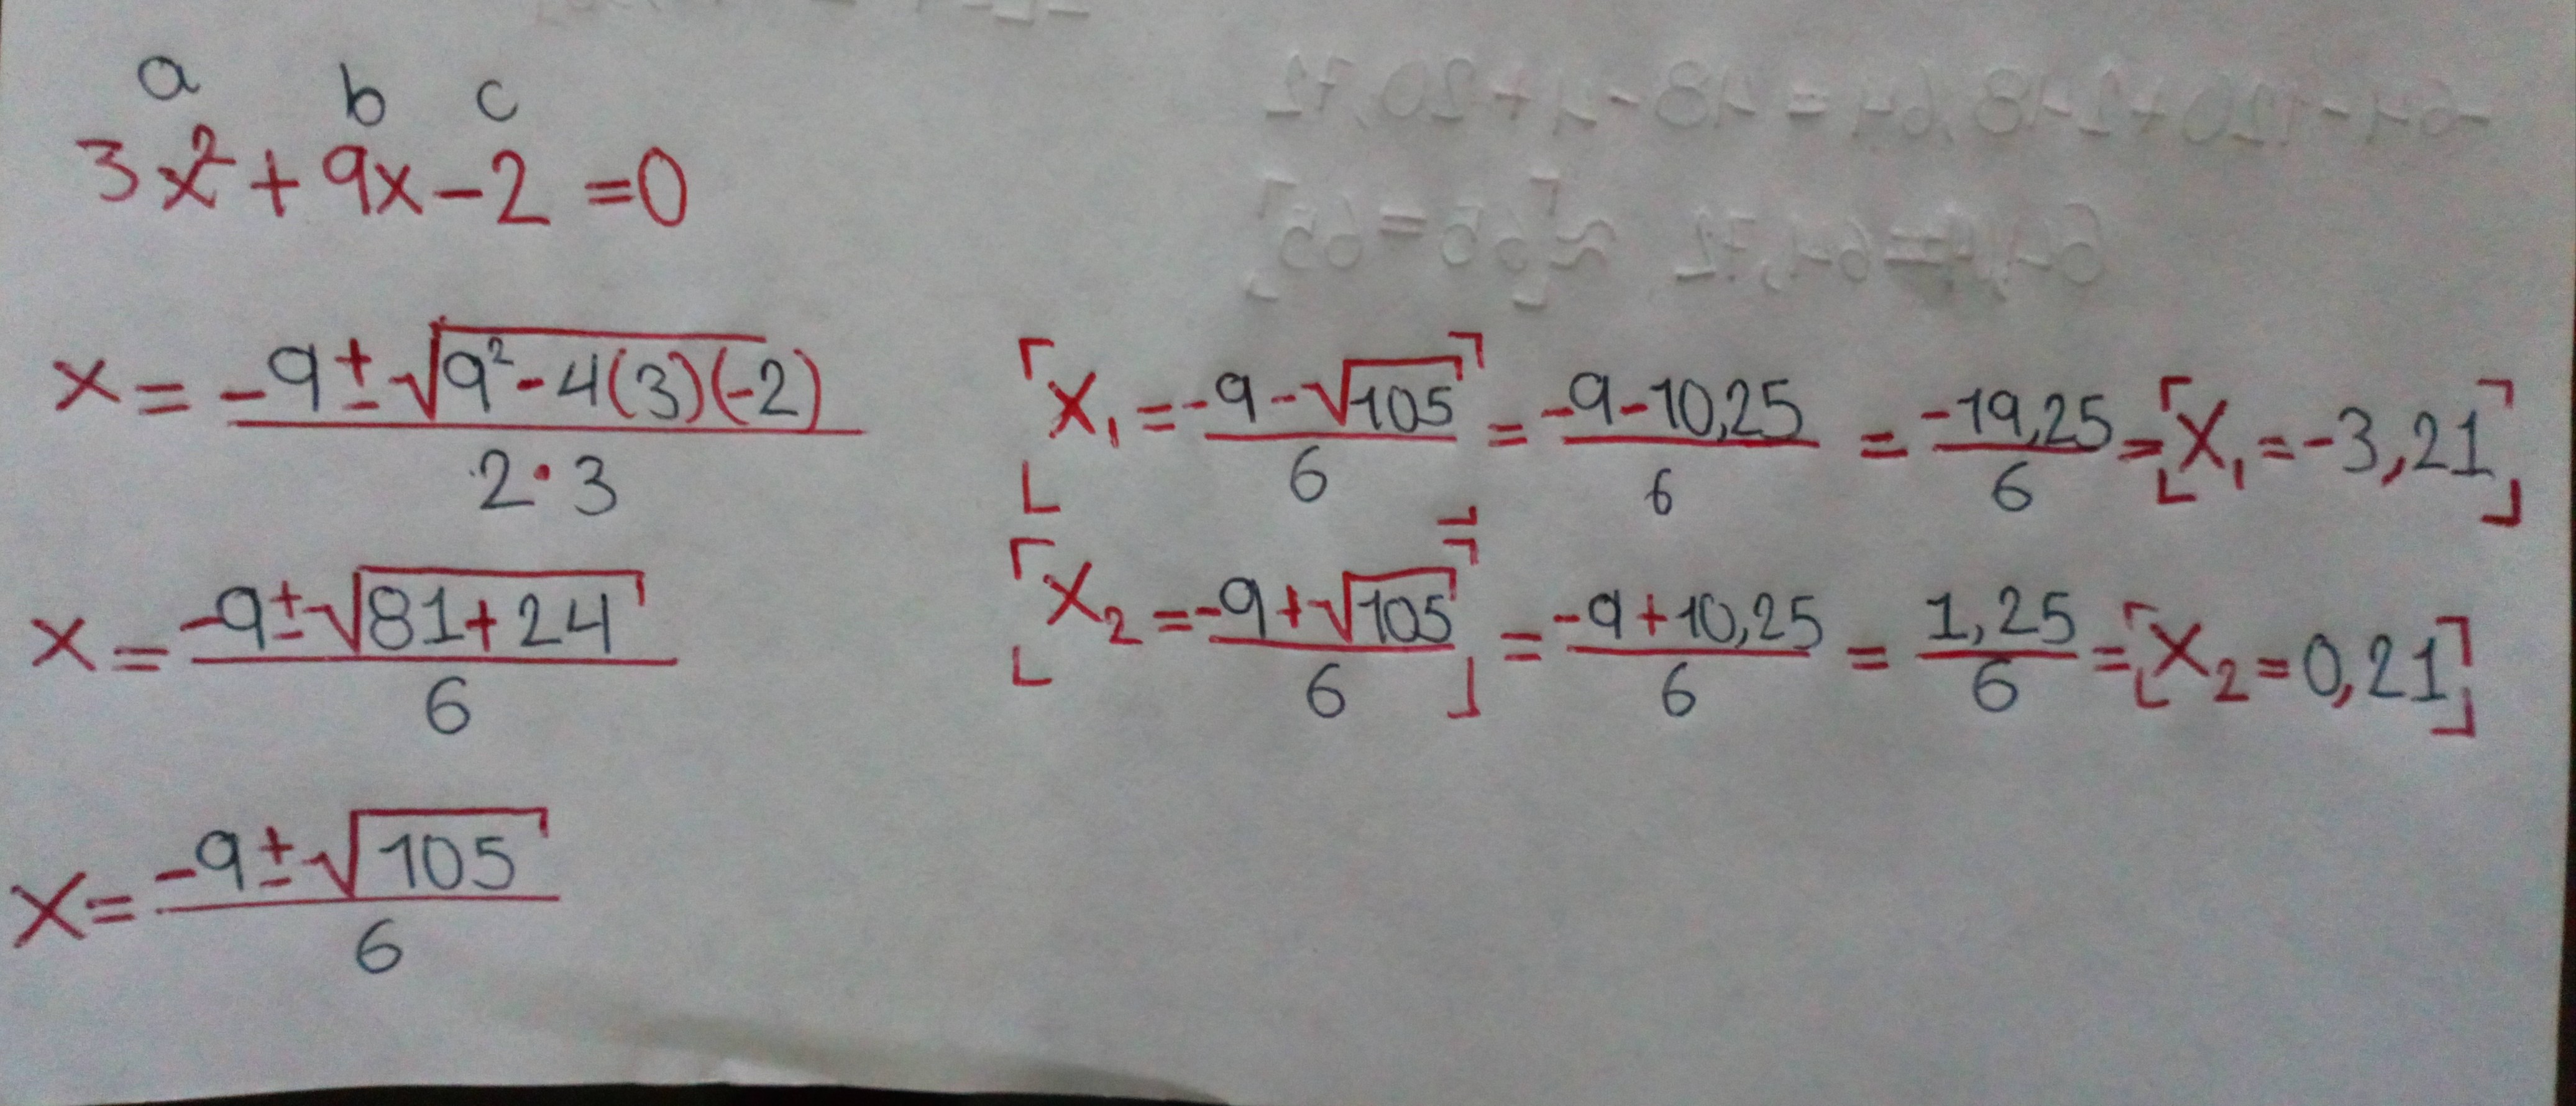 a b c
3x² + 9x - 2 = 0
x = (-9 ± √(9² - 4(3)(-2))) / (2 · 3)
x = (-9 ± √(81 + 24)) / 6
x = (-9 ± √105) / 6
[x₁ = (-9 - √105) / 6] = (-9 - 10,25) / 6 = (-19,25) / 6 = [x₁ = -3,21]
[x₂ = (-9 + √105) / 6] = (-9 + 10,25) / 6 = 1,25 / 6 = [x₂ = 0,21]